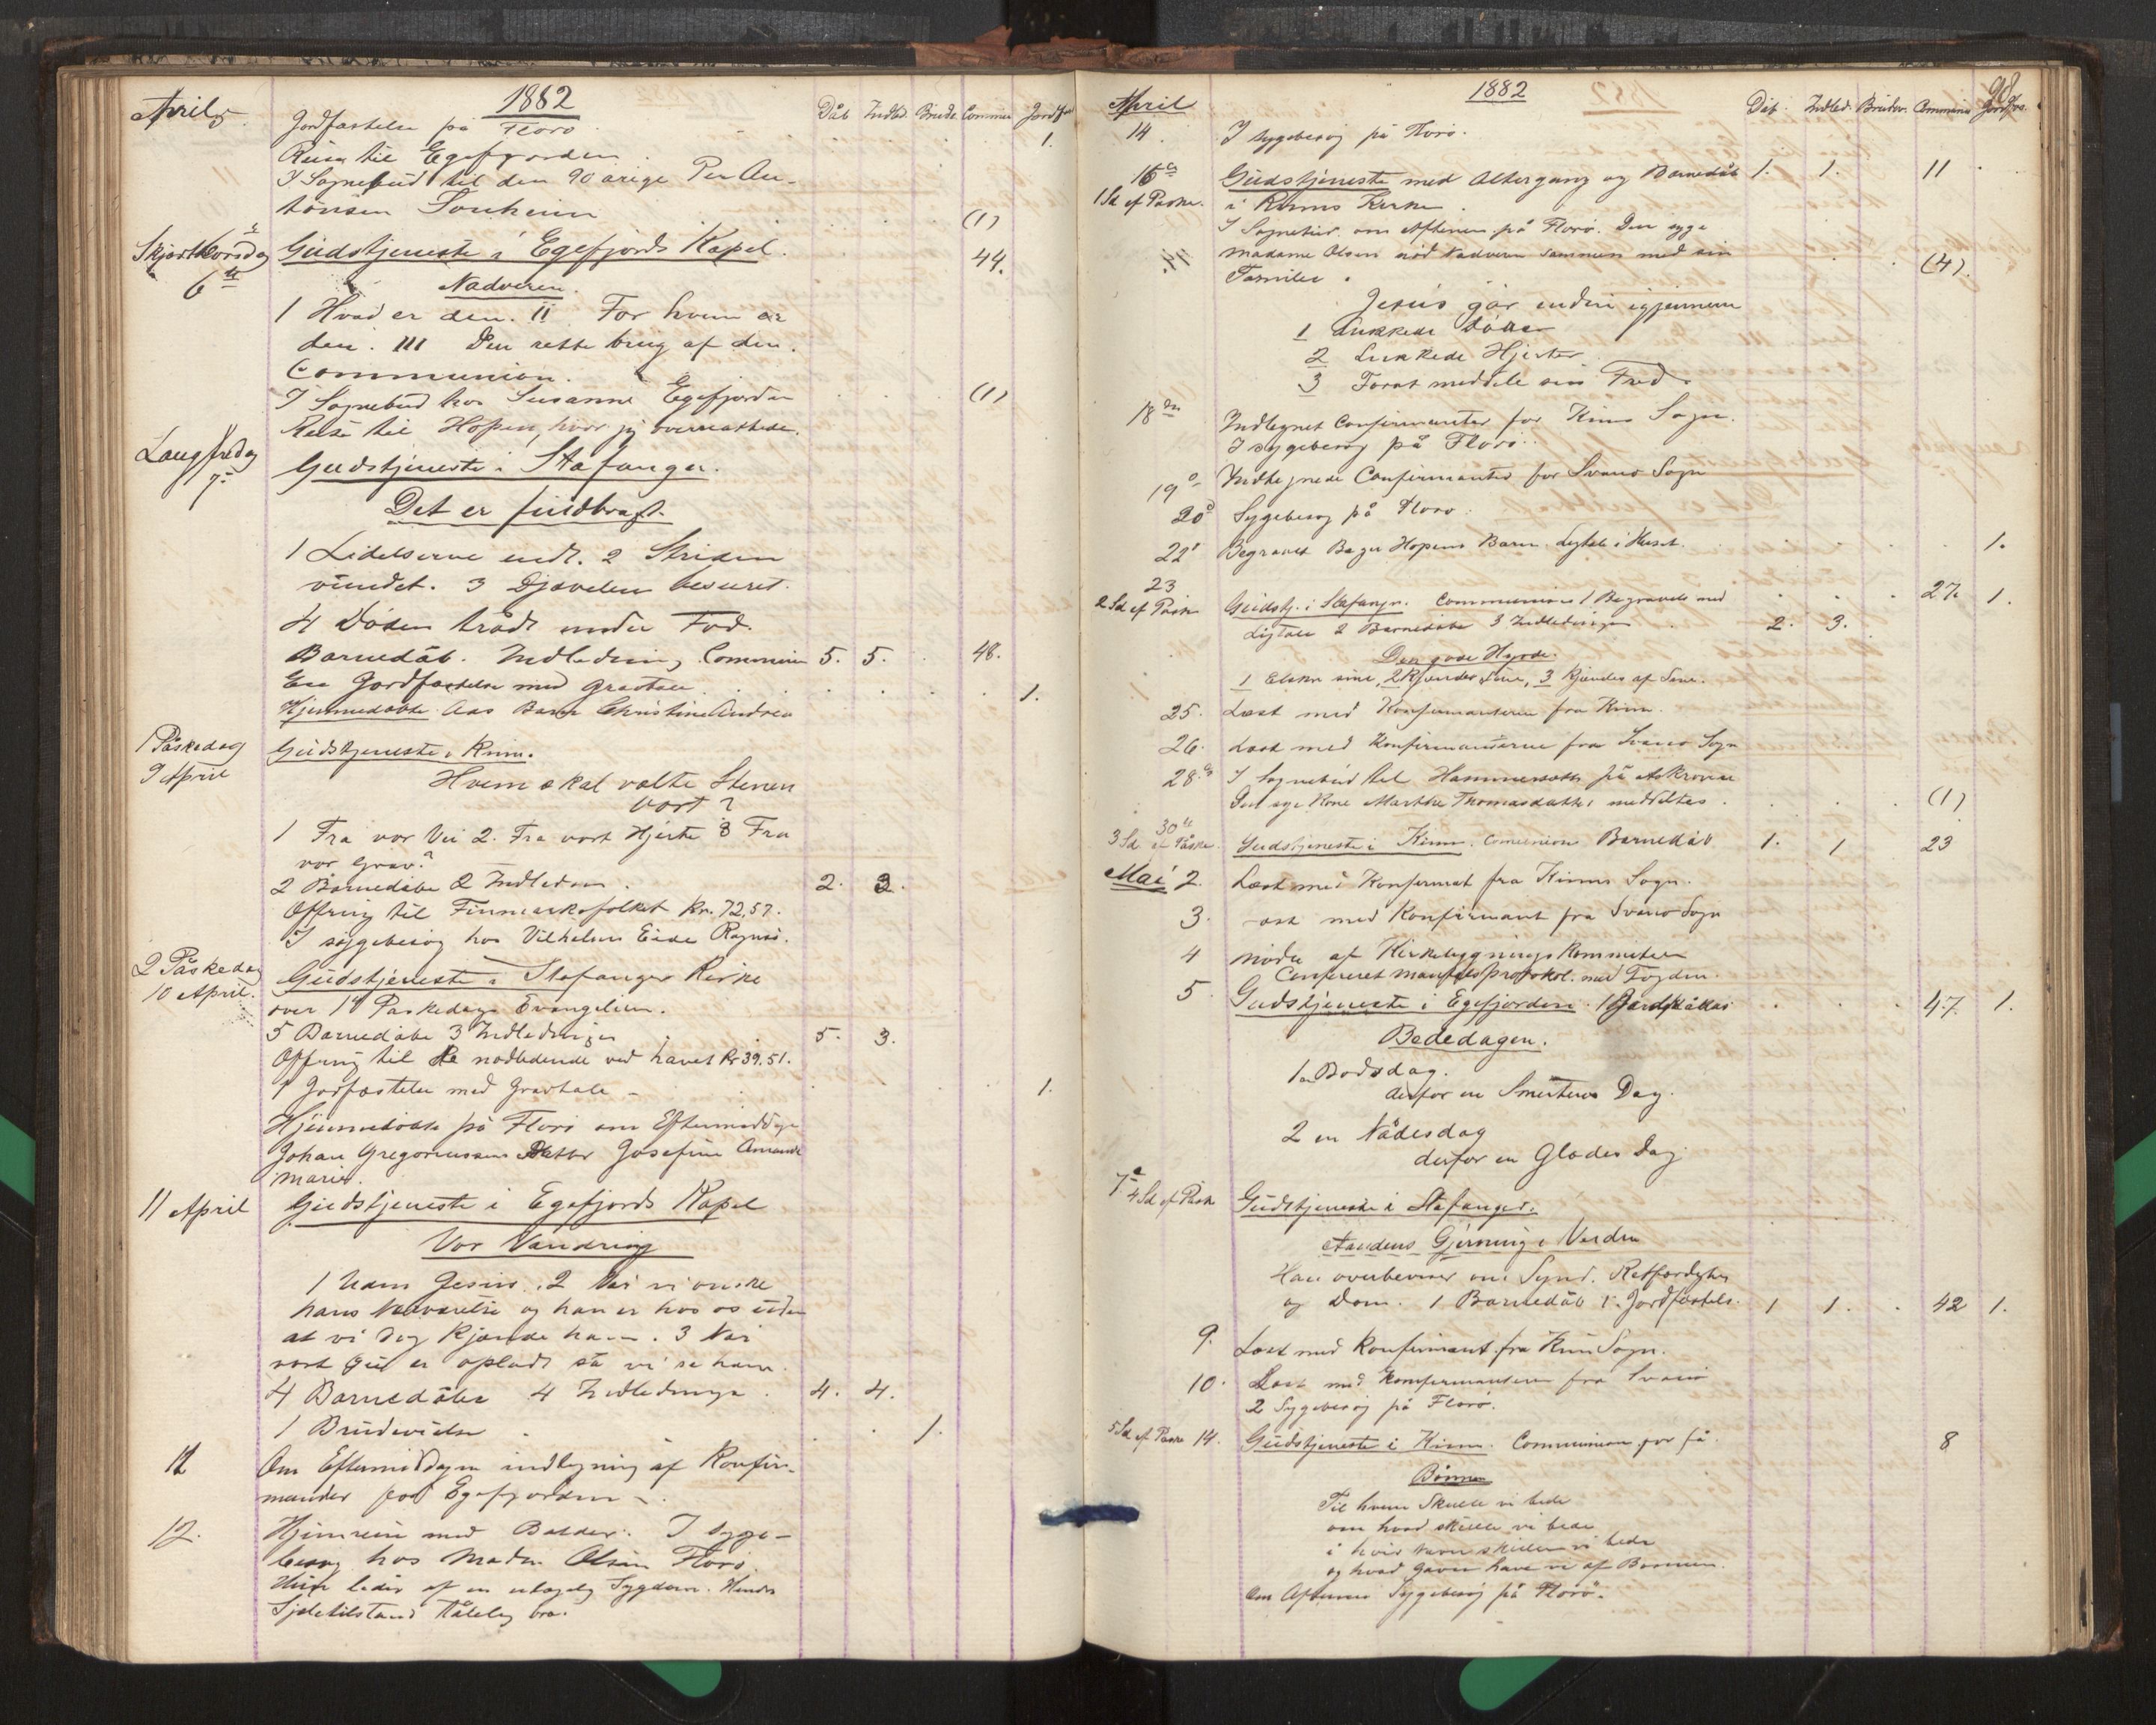 1882
April 5. Dåb Indled. Brude. Commun Jordf
Jordfæstelse på Florø. 1.
Reise til Egefjorden.
I Sognebud til den 90 årige Per An-
tonsen (1)
Skjærthorsdag Gudstjeneste i Egefjords Kapel. 44.
6te
Nadveren.
1 Hvad er den. II For hvem er
den. III Den rette brug af den.
Communion.
I Sognebud hos Susanne Egefjorden (1)
Reise til Hopen, hvor jeg overnattede.
Langfredag Gudstjeneste i Stafanger.
7
Det er fuldbragt.
1 Lidelserne endt. 2 Striden
vundet. 3 Djævelen beseiret.
4 Døden trådt under Fod.
Barnedåb. Indledning. Communion 5. 5. 48.
En Jordfæstelse med gravtale 1.
Hjemmedøbte Aas Barn Christine Andrea
1 Påskedag Gudstjeneste i Kinn.
9 April
Hvem skal vælte Stenen
bort?
1 Fra vor Vei 2. Fra vort Hjerte 3 Fra
vor Grav?
2 Barnedåbe 2 Indledn. 2. 2.
Offring til Finmarksfolket Kr. 72,57.
I sygebesøg hos Vilhelm Eide
2 Påskedag Gudstjeneste i Stafanger Kirke
10 April.
over 1 Paskedags Evangelium.
5 Barnedåbe 3 Indledninger 5. 3.
Offring til de nødlidende ved havet Kr 39.51.
1 Jordfæstelse med Gravtale - 1.
Hjemmedøbte på Florø om Eftermiddagen
Johan Gregoriussens Datter Josefine Amanda
Marie.
11 April Gudstjeneste i Egefjords Kapel
Vor Vandring
1 Uden Jesus. 2 Når vi ønske
hans Nærværelse og han er hos os uden
at vi dog kjende ham. 3 Når
vort Øie er opladt så vi se ham.
4 Barnedåbe 4 Indledninge. 4. 4.
1 Brudevielse 1.
11 Om Eftermiddagen indtegning af Konfir-
mander for Egefjorden -.
12. Hjemreise med Balder. I syge-
besøg hos Madm Olsen Florø
Hun lider af en ulægelig Sygdom. Hendes
Sjeletilstand tålelig bra.
98
1882
April Dåb. Indled. Brudev. Commun Jordfæs.
14. I sygebesøg på Florø.
16de Gudstjeneste med Altergang og Barnedåb 1. 1. 11
1 Sd ef Paske. i Kinns Kirke.
I Sognebud om Aftenen på Florø. Den syge
Madame Olsen nød Nadveren sammen med sin (4).
Familie.
Jesus går endnu igjennem
1 Lukkede Døre
2 Lukkede Hjerter.
3 Forat meddele sin Fred.
18de Indtegnet Confirmanter for Kinn Sogn.
I sygebesøg på Florø.
19 Indtegnede Confirmanter for Svanø Sogn
20 Sygebesøg på Florø.
22 Begravet Bager Hopens Barn. Ligtale i Huset. 1.
23
2 Sd ef Påske Gudstj. i Stafanger. Communion 1 Begravels med 27. 1.
Ligtale 2 Barnedåbe 3 Indledninger 2. 3.
Den gode Hyrde.
1 Elsker sine, 2 Kjender sine, 3 Kjendes af Sine.
25. Læst med Konfirmanterne fra Kinn.
26. Læst med Konfirmanterne fra Svanø Sogn
28. I Sognebud til Hammersæt på Askrova
Den syge Kone Marthe Thomasdatter meddeltes. (1)
30
3 Sd ef Påske. Gudstjeneste i Kinn. Communion Barnedåb 1. 1 23
Mai 2. Læst med Konfirmat fra Kinns Sogn.
3. -æst med Konfirmant fra Svanø Sogn
4 Møde af Kirkebygnings Kommiteen
Confereret Mandtalsprotokol. med Fogden.
5. Gudstjeneste i Egefjorden. 1 Jordfæstelse 47. 1.
Bededagen.
1 en Bodsdag.
derfor en Smertens Dag.
2 en Nådesdag
derfor en Glædes Dag
7de
4 Sd ef Påsk Gudstjeneste i Stafanger.
Aandens Gjerning i Verden
Han overbeviser om Synd. Retfærdighed
og Dom. 1 Barnedåb 1. Jordfæstels. 1 1. 42 1.
9. Læst med Konfirmant fra Kinn Sogn.
10. Læst med Konfirmanterne fra Svanø
2 Sygebesøg på Florø.
5 Sd ef Paske 14. Gudstjeneste i Kinn. Communion for få. 8
Bønnen
Til hvem skulle vi bede
om hvad skulle vi bede
i hvis navn skulle vi bede
og hvad gavn have vi af Bønnen.
Om Aftenen Sygebesøg på Florø.